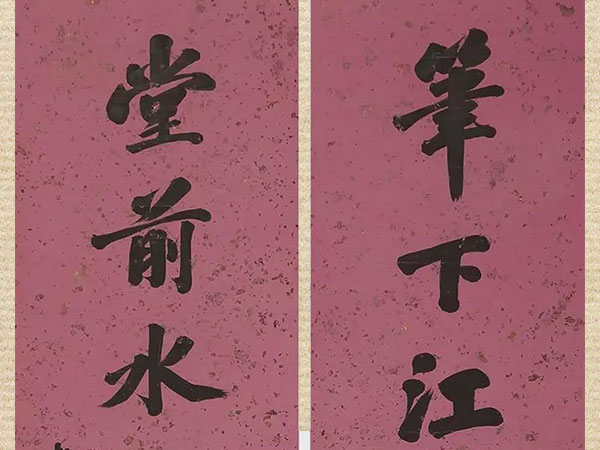 筆下江
堂前水